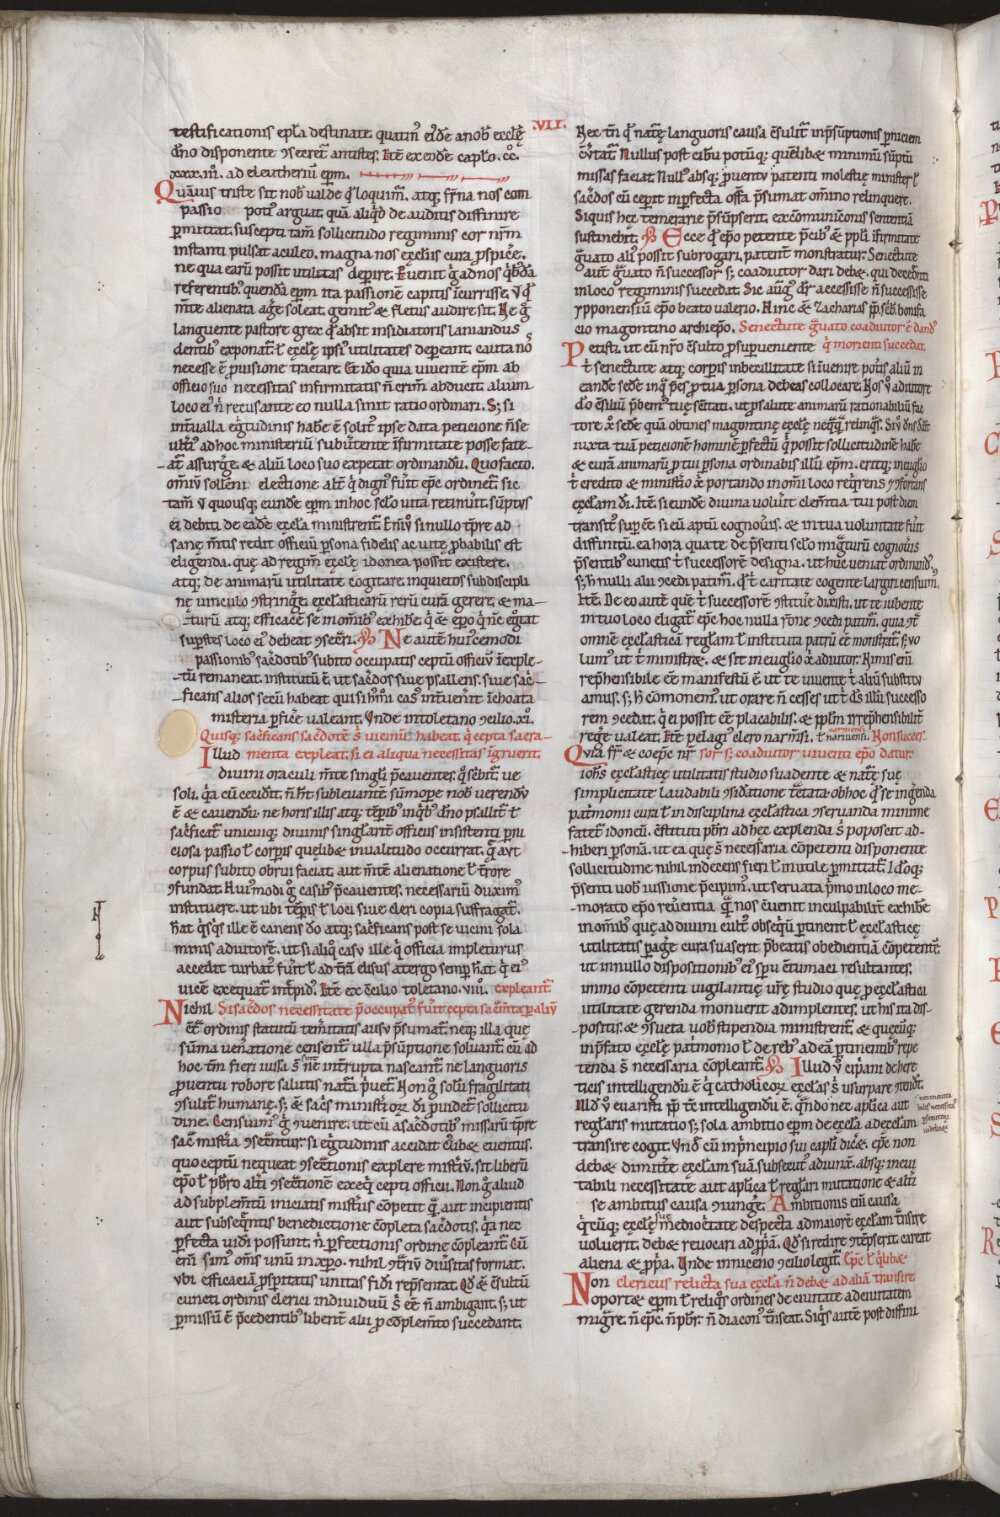 .VII.
testificationis epl̄a destinate. quatin᷒ eidē a nob᷒ eccl̄ę
dn̄o disponente ɔsecret᷒ antistes. Itē ex eodē caplo. cc᷒.
xxxx.iii. ad eleutheriū ep̄m.
Quāuis triste sit nob᷒ ualde q̄ loquim᷒. atq; fr̄na nos com
passio potī arguat. quā aliq̇d de auditis diffinire
p̄mittat. suscepti tam̄ sollicitudo regiminis cor nr̄m
instanti pulsat aculeo. magna nos eccl̄iis cura p̄spicē.
ne qua earū possit utilitas depire. Euenit g̊ ad nos q̇bdā
referentib᷒ quendā ep̄m ita passionē capitis īcurrisse. ut q̊
m̄te alienata agē soleat. gemit᷒ & fletus audire sit. Ne g̊
languente pastore grex q̊ absit insidiatoris laniandus
dentib᷒ exponat᷒. ł eccl̄ę ipsi᷒ utilitates depeant. cauta nob᷒
necesse ē p̄uisione tractare. Et iō quia uiuentē ep̄m ab
officio suo necessitas infirmitatis n̄ crim̄ abducit. alium
loco ei᷒ n̄ recusante eo nulla sinit ratio ordinari. S; si
int̄ualla egritudinis habē ē solit᷒. ipse data peticione n̄ se
ult̄i᷒ ad hoc ministeriū subuertente īfirmitate posse fate-
at᷒ assurgē. & aliū loco suo expetat ordinandū. Quo facto.
om̄iū sollenni electione alt̄ q̇ dign᷒ fuit ep̄c ordinet᷒. sic
tam̄ ut quousq; eundē ep̄m in hoc sclō uita retinuit. sūptus
ei debiti de eadē eccl̄a ministrent᷒. Eni᷒uo si nullo tp̄re ad
sanę m̄tis redit officiū p̄sona fidelis ac uitę p̄babilis est
eligenda. que ad regim̄ eccl̄ę idonea possit existere.
atq; de animarū utilitate cogitare. inquietos sub discipli
nę uinculo ɔstringē. eccl̄asticarū rerū curā gerere. & ma-
turū atq; efficacē se in om̄ib᷒ exhibē. q̇ & ep̄o q̇ nc̄ egrotat
sup̄stes loco ei᷒ debeat ɔsecr̄i. Ne autē huiuscemodi
passionib᷒ sac̄dotib᷒ subito occupatis ceptū officiū īexple-
tū remaneat. institutū ē ut sac̄dos siue psallens. siue sac̄-
ficans alios secū habeat qui si hūmi cas᷒ int̄uenit īchoata
misteria p̄ficē ualeant. Vnde in toletano ɔcilio .xi.
Quisq; sac̄ficans sac̄dotē s̄ uicinū habeat. q̇ cepta sacra-
Illud menta expleat. si ei aliqua necessitas īgruerit.
diuini oraculi m̄te singl̄i p̄cauentes. q̊ sc̄bit᷒. ue
soli. q̇a cū ceciderit. n̄ ht̄ subleuantē. sūmope nob᷒ uerendū
ē & cauendū. ne horis illis atq; tēpib᷒ inq̇b᷒ dn̄o psallit᷒ ł
sac̄ficat᷒. unicuiq; diuinis singl̄arit᷒ officiis insistenti p̄ni
ciosa passio ł corpis quęlibet inualitudo occurrat. q̄ aut
corpus subito obrui faciat. aut m̄tē alienatione ł t̄rore
ɔfundat. Hui᷒modi g̊ casib᷒ p̄cauentes. necessariū duxim᷒
instituere. ut ubi tēpis ł loci siue cleri copia suffragat᷒.
h̄at q̇sq̇s ille ē canens dō atq; sac̄ficans post se uicini sola
minis adiutorē. ut si aliq̊ casu ille q̇ officia impleturus
accedit turbat᷒ fuit ł ad t̄rā elisus a tergo semp h̄at q̇ ei᷒
uicē exequat᷒ int̄pid᷒. Itē ex ɔcilio toletano. viii. expleant᷒
Nichil Si sac̄dos necessitate p̄occupat᷒ fuit cepta sac̄m̄ta p̄ aliū
ɔt᷒ ordinis statutū tem̄itatis ausu p̄sumat᷒. neq; illa quę
sūma uen̄atione censent᷒. ulla p̄sūptione soluant᷒. cū ad
hoc tm̄ fieri iussa s̄ ne int̄rupta nascant᷒. ne languoris
p̄uentu robore salutis nata p̄uet᷒. Non g̊ solū fragilitati
ɔsulit᷒ humanę. s; & sac̄s ministrōr dī p̄uidet᷒ sollicitu
dine. Censuim᷒ g̊ ɔuenire. ut cū a sac̄dotib᷒ missarū tp̄re
sac̄ mist̄ia ɔsecnt᷒ur. si egritudinis accidat c᷒libet euentus.
quo ceptū nequeat ɔsec̄tionis explere mist̄iū. sit liberū
ep̄o ł pb̄ro alt̄i ɔsec̄tionē exeq̇ cepti officii. Non g̊ aliud
ad supplem̄tū iniciatis mist̄iis cōpetit q̄ aut incipientis
aut subseq̄ntis benedictione cōpleta sac̄dotis. q̇a nec
p̄fecta uidi possunt. n̄ p̄fectionis ordine cōpleant᷒. Cū
eni᷒ sim᷒ om̄s unū in xp̄o. nihil ɔt̄riū diuisitas format.
ubi efficaciā p̄spitatis unitas fidi rep̄sentat. Qd̄ & ɔsultū
cuncti ordinis clerici indiuiduū s̄ ēē n̄ ambigant. s; ut
p̄missū ē p̄cedentib᷒ liberit᷒ alii p̄ cōplem̄to succedant.
Nec tn̄ q̊ natę languoris causa ɔsulit᷒ in p̄sūptionis p̄niciem
ɔu̅tat᷒. Nullus post cibū potūq; quēlibet minimū sūptū
missas faciat. Null᷒ absq; p̄uentu patenti molestię minister ł
sac̄dos cū cepit inp̄fecta off̄a p̄sumat om̄ino relinquere.
Siquis hec temerarie p̄sūpserit. excōmunicōnis sententiā
sustinebit. Ecce q̊ ep̄o petente p̄cib᷒ & pp̄li īfirmitate
g̊uato ali᷒ possit subrogari. patent᷒ monstratur. Senectute
aut̄ g̊uato n̄ successor s; coadiutor dari debet. qui decedenti
in loco regiminis succedat. Sic aug᷒ dr̄ accessisse n̄ successisse
ypponensiū ep̄o beato ualerio. Hinc & Zacharias pp̄ scb̄ bonifa
cio magontino archiep̄o. Senectute g̊uato coadiutor ē dand᷒
Petisti. ut cū nr̄o ɔsulto p̄ superueniente q̇ morienti succedat.
ł senectute atq; corpis imbecillitate si inuenire pot᷒is aliū in
eandē sedē inq̄ p̄es p̄ tua p̄sona debeas collocare. Nos ū adiutore
dō ɔsiliū p̄bem᷒ tuę sc̄itati. ut p̄ salute animarū rationabiliū fac
tore xp̄o sedē quā obtines magontinę eccl̄ę neq̄q̄ relinq̄s.
iuxta tuā peticionē hominē p̄fectū q̇ possit sollicitudinē habē
& curā animarū p̄ tui p̄sona ordinabis illū ep̄m. eritq; in euglio
ł credito & ministio xp̄i portando in om̄i loco req̇rens & ɔfortans
eccl̄am dī. Itē. Si eundē diuina uoluit clem̄tia tui post diem
transit᷒ sup̄ēē si eū aptū cognouis. & in tua uoluntate fuit
diffinitū. ea hora qua te de p̄senti sclō mig̊turū cognouis
p̄sentib᷒ cunctis ł successorē designa. ut huc ueniat ordinand᷒.
s; h̄ nulli alii ɔcedi patim᷒. q̊ ł caritate cogente largiri censuim᷒.
Itē. De eo autē quē ł successorē ɔstitue dixisti. ut te iubente
in tuo loco eligat᷒ ep̄c hoc nulla r̄one ɔcedi patim᷒. quia ɔt᷒
om̄nē eccl̄asticā regl̄am ł instituta patrū ēē monstrat᷒. s; uo
lum᷒ ut ł ministret. & sit in euglio xp̄i adiutor. Nimis eni᷒
rep̄hensibile ēē manifestū ē. ut te uiuente ł aliū substitu
amus. s; h̄ cōmonem᷒. ut orare n̄ cesses ut ł d̄s illū successo
rem ɔcedat. q̇ ei possit ēē placabilis. & pp̄lm irrep̄hensibilit᷒
regē ualeat. Itē pelagi᷒ clero narnisi. ł nariuensi. Non succes-
narniensi
Quia fr̄ & coep̄c nr̄ sor s; coadiutor uiuenti ep̄o datur.
ioh̄s eccl̄asticę utilitatis studio suadente & natę suę
simplicitate laudabili ɔsidatione t̄tata. ob hoc q̊ se in g̊enda
pat̄monii cura ł in disciplina eccl̄astica ɔseruanda minime
fatet᷒ idoneū. ɔstituti pb̄ri ad hec explenda s̄ poposcit ad-
hiberi p̄sonā. ut ea que s̄ necessaria cōpetenti disponente
sollicitudine nihil indecens fieri ł inutile p̄mittat᷒. Iđoq;
p̄senti uob᷒ iussione p̄cipim᷒. ut seruata p̄mo in loco me-
morato ep̄o reuentia q̄ nos ɔuenit inculpabilit᷒ exhibē
in om̄ib᷒ quę ad diuini cult᷒ obseq̇ū p̄tinent ł eccl̄asticę
utilitatis pagē cura suaserit. p̄beatis obedientiā cōpetent᷒.
ut in nullo dispositionib᷒ ei᷒ spu ɔtumaci resultantes.
immo cōpetenti uigilantię ur̄ę studio quę p̄ eccl̄astica
utilitate gerenda monuerit adimplentes. ut his ita dis-
positis. & ɔsueta uob᷒ stipendia ministrent᷒. & quecūq;
in p̄fato eccl̄ę pat̄monio ł de reb᷒ ad eā p̄tinentib᷒ repe
tenda s̄ necessaria cōpleant᷒. Illud ū cip̄iani de here
ticis intelligendū ē q̇ catholicor̄ eccl̄as s̄ usurpare ɔtendt᷒.
Illđ ū euaristi pp̄ tē intelligendū ē. q̄ndo nec apl̄ica aut
reglaris mutatio s; sola ambitio ep̄m de eccl̄a ad eccl̄am
transire cogit. Vnđ cū in p̄ncipio sui capl̄i dic̄et. ep̄c non
debet dimitt̄e eccl̄am suā. subsecut᷒ adiunx̄. absq; ineui
tabili necessitate aut apl̄ica ł reglari mutatione & alt̄i
se ambitus causa ɔiungē. Ambitionis eni᷒ causa
q̇cūq; eccl̄ę suę mediocritate despecta ad maiorē eccl̄am t̄nsire
uoluerit. debet reuocari ad p̄p̄a. Qđ si redire ɔtēpserit. careat
aliena & p̄p̄a. Vnde in niceno ɔcilio legit᷒. Ep̄c ł q̇libet
Non clericus relicta sua eccl̄a n̄ debet ad aliā transire
oportet ep̄m ł reliq̊s ordines de ciuitate ad ciuitatem
mig̊re. n̄ ep̄c. n̄ pb̄r. n̄ diacon᷒ t̄nseat. Siq̇s autē post diffini